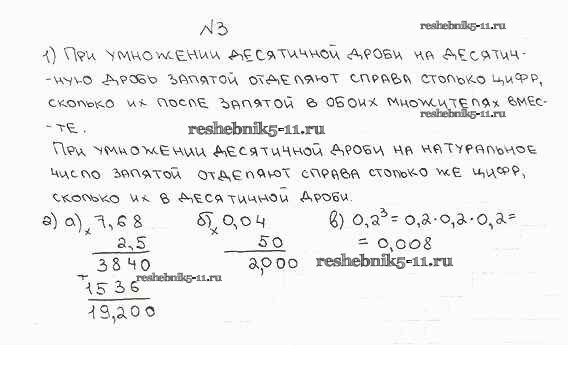 №3
reshebnik5-11.ru
1) ПРИ УМНОЖЕНИИ ДЕСЯТИЧНОЙ ДРОБИ НА ДЕСЯТИЧ-
-НУЮ ДРОБЬ ЗАПЯТОЙ ОТДЕЛЯЮТ СПРАВА СТОЛЬКО ЦИФР,
СКОЛЬКО ИХ ПОСЛЕ ЗАПЯТОЙ В ОБОИХ МНОЖИТЕЛЯХ ВМЕС-
reshebnik5-11.ru
-ТЕ.
reshebnik5-11.ru
ПРИ УМНОЖЕНИИ ДЕСЯТИЧНОЙ ДРОБИ НА НАТУРАЛЬНОЕ
ЧИСЛО ЗАПЯТОЙ ОТДЕЛЯЮТ СПРАВА СТОЛЬКО ЖЕ ЦИФР,
СКОЛЬКО ИХ В ДЕСЯТИЧНОЙ ДРОБИ.
2) а) × 7,68 б) × 0,04 в) 0,2³ = 0,2·0,2·0,2 =
2,5 50 = 0,008
3840 2,000 reshebnik5-11.ru
+ 1536 reshebnik5-11.ru
19,200